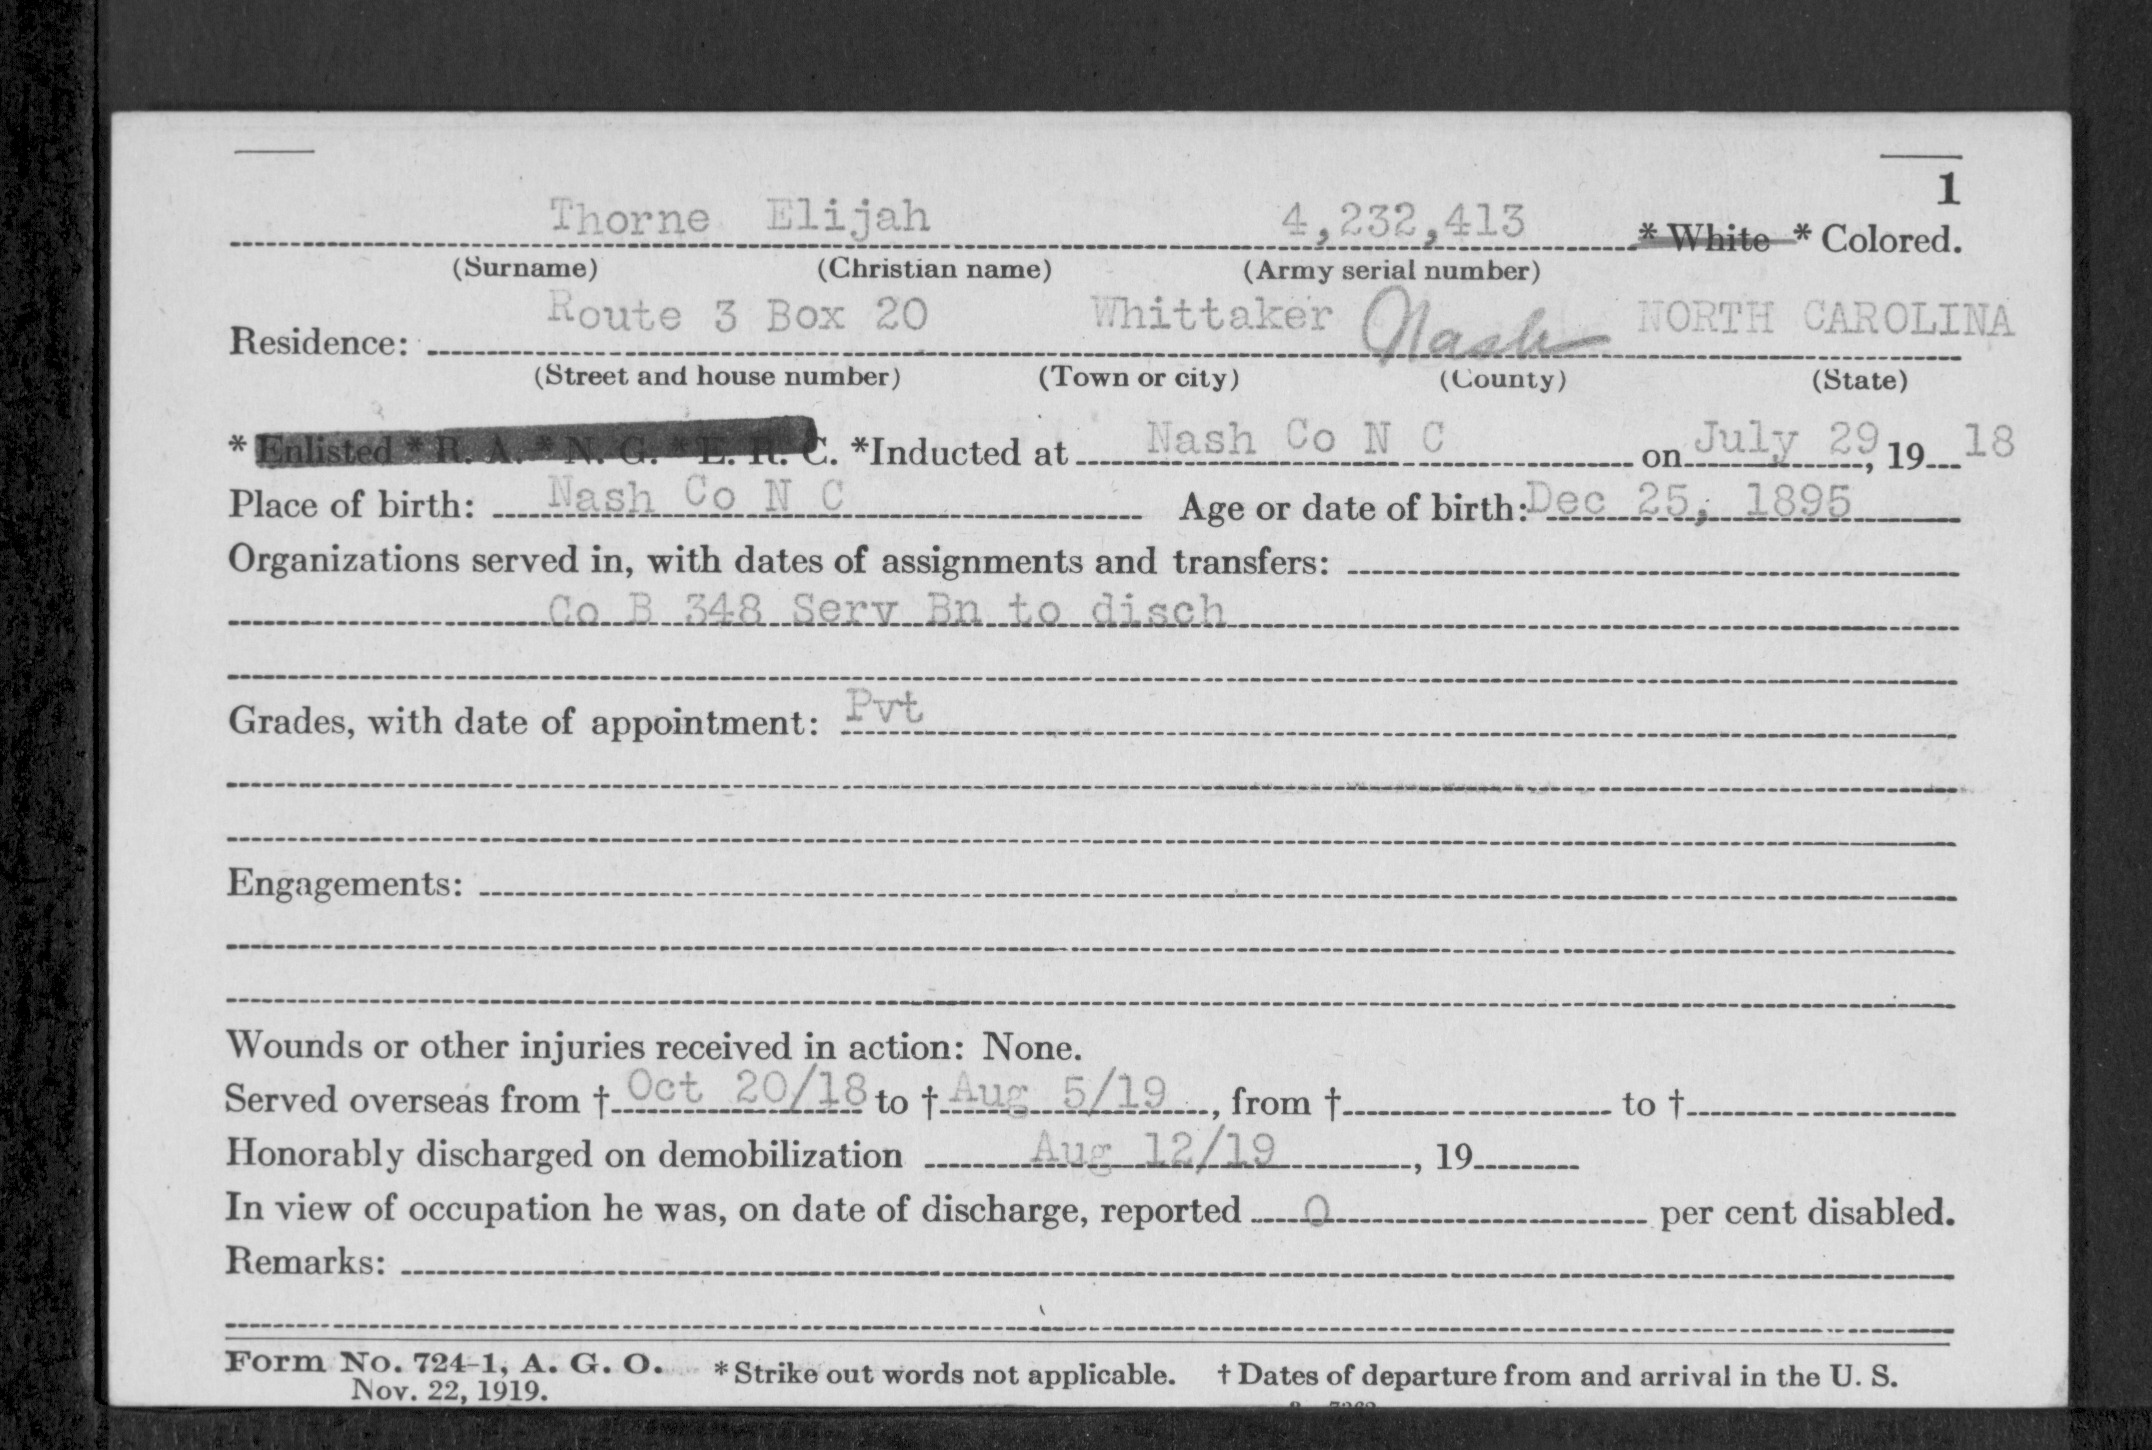 1
Thorne Elijah 4,232,413 * White * Colored.
(Surname) (Christian name) (Army serial number)
Residence: Route 3 Box 20 Whittaker Nash NORTH CAROLINA
(Street and house number) (Town or city) (County) (State)
* Enlisted * R. A. * N. G. * E. R. C. *Inducted at Nash Co N C on July 29, 19 18
Place of birth: Nash Co N C Age or date of birth: Dec 25, 1895
Organizations served in, with dates of assignments and transfers:
Co B 348 Serv Bn to disch
Grades, with date of appointment: Pvt
Engagements:
Wounds or other injuries received in action: None.
Served overseas from † Oct 20/18 to † Aug 5/19, from † to †
Honorably discharged on demobilization Aug 12/19, 19
In view of occupation he was, on date of discharge, reported 0 per cent disabled.
Remarks:
Form No. 724-1, A. G. O. * Strike out words not applicable. † Dates of departure from and arrival in the U. S.
Nov. 22, 1919.